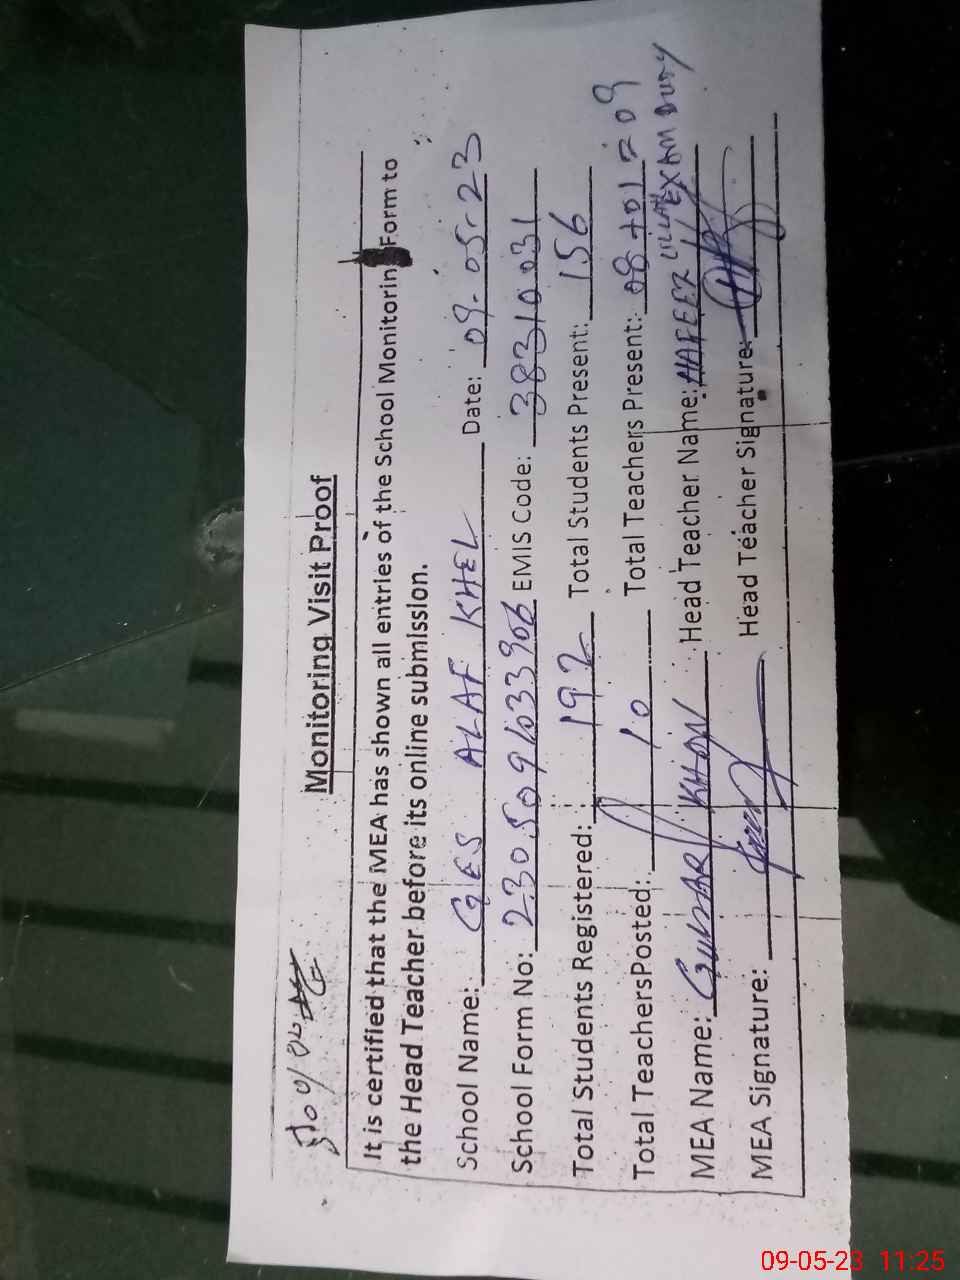 Monitoring Visit Proof
It is certified that the MEA has shown all entries of the School Monitorin Form to
the Head Teacher before its online submission.
School Name: GES ALAF KHEL Date: 09-05-23
School Form No: 2305091033906 EMIS Code: 38310031
Total Students Registered: 192 Total Students Present: 156
Total TeachersPosted: 10 Total Teachers Present: 08+01=09
MEA Name: GULZAR KHAN Head Teacher Name: HAFEEZ ULLAH/EXAM DUTY
MEA Signature: Head Teacher Signature:
09-05-23 11:25